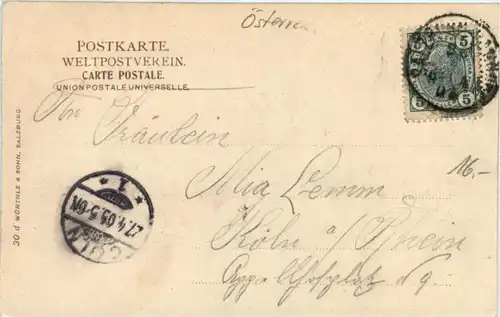 Österr
POSTKARTE.
WELTPOSTVEREIN.
CARTE POSTALE.
UNION POSTALE UNIVERSELLE.
5 5
Fräulein
Mia Lemm
16.-
Köln a/Rhein
9.
30 d WÜRTHLE & SOHN, SALZBURG.
* 1 *
27.4.05.5-6N
CÖLN